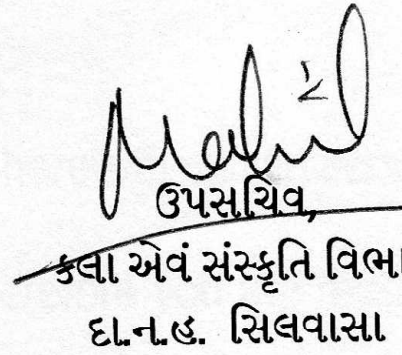 ઉપસચિવ,
કલા એવં સંસ્કૃતિ વિભા
દા.ન.હ. સિલવાસા